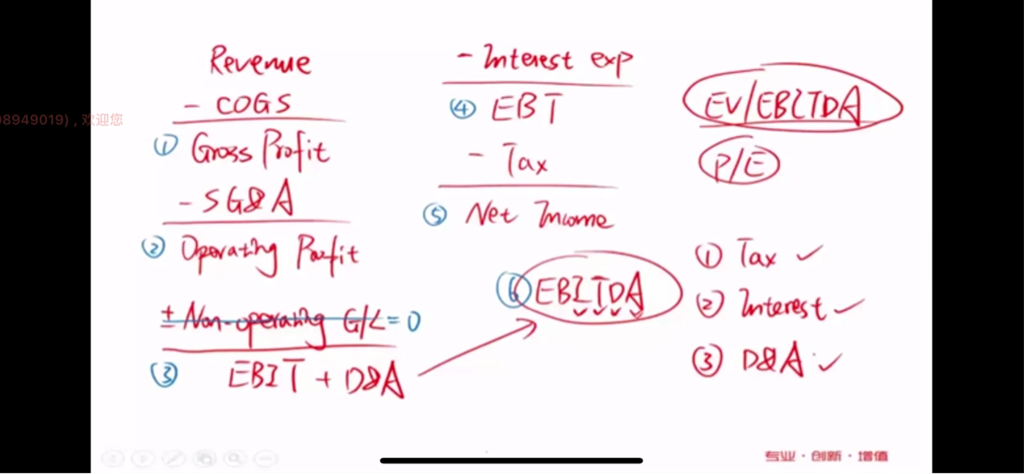 Revenue
- COGS
① Gross Profit
- SG&A
② Operating Profit
± Non-operating G/L = 0
③ EBIT + D&A
- Interest exp
④ EBT
- Tax
⑤ Net Income
⑥ EBITDA
EV/EBITDA
P/E
① Tax ✓
② Interest ✓
③ D&A ✓
08949019) , 欢迎您
专业·创新·增值